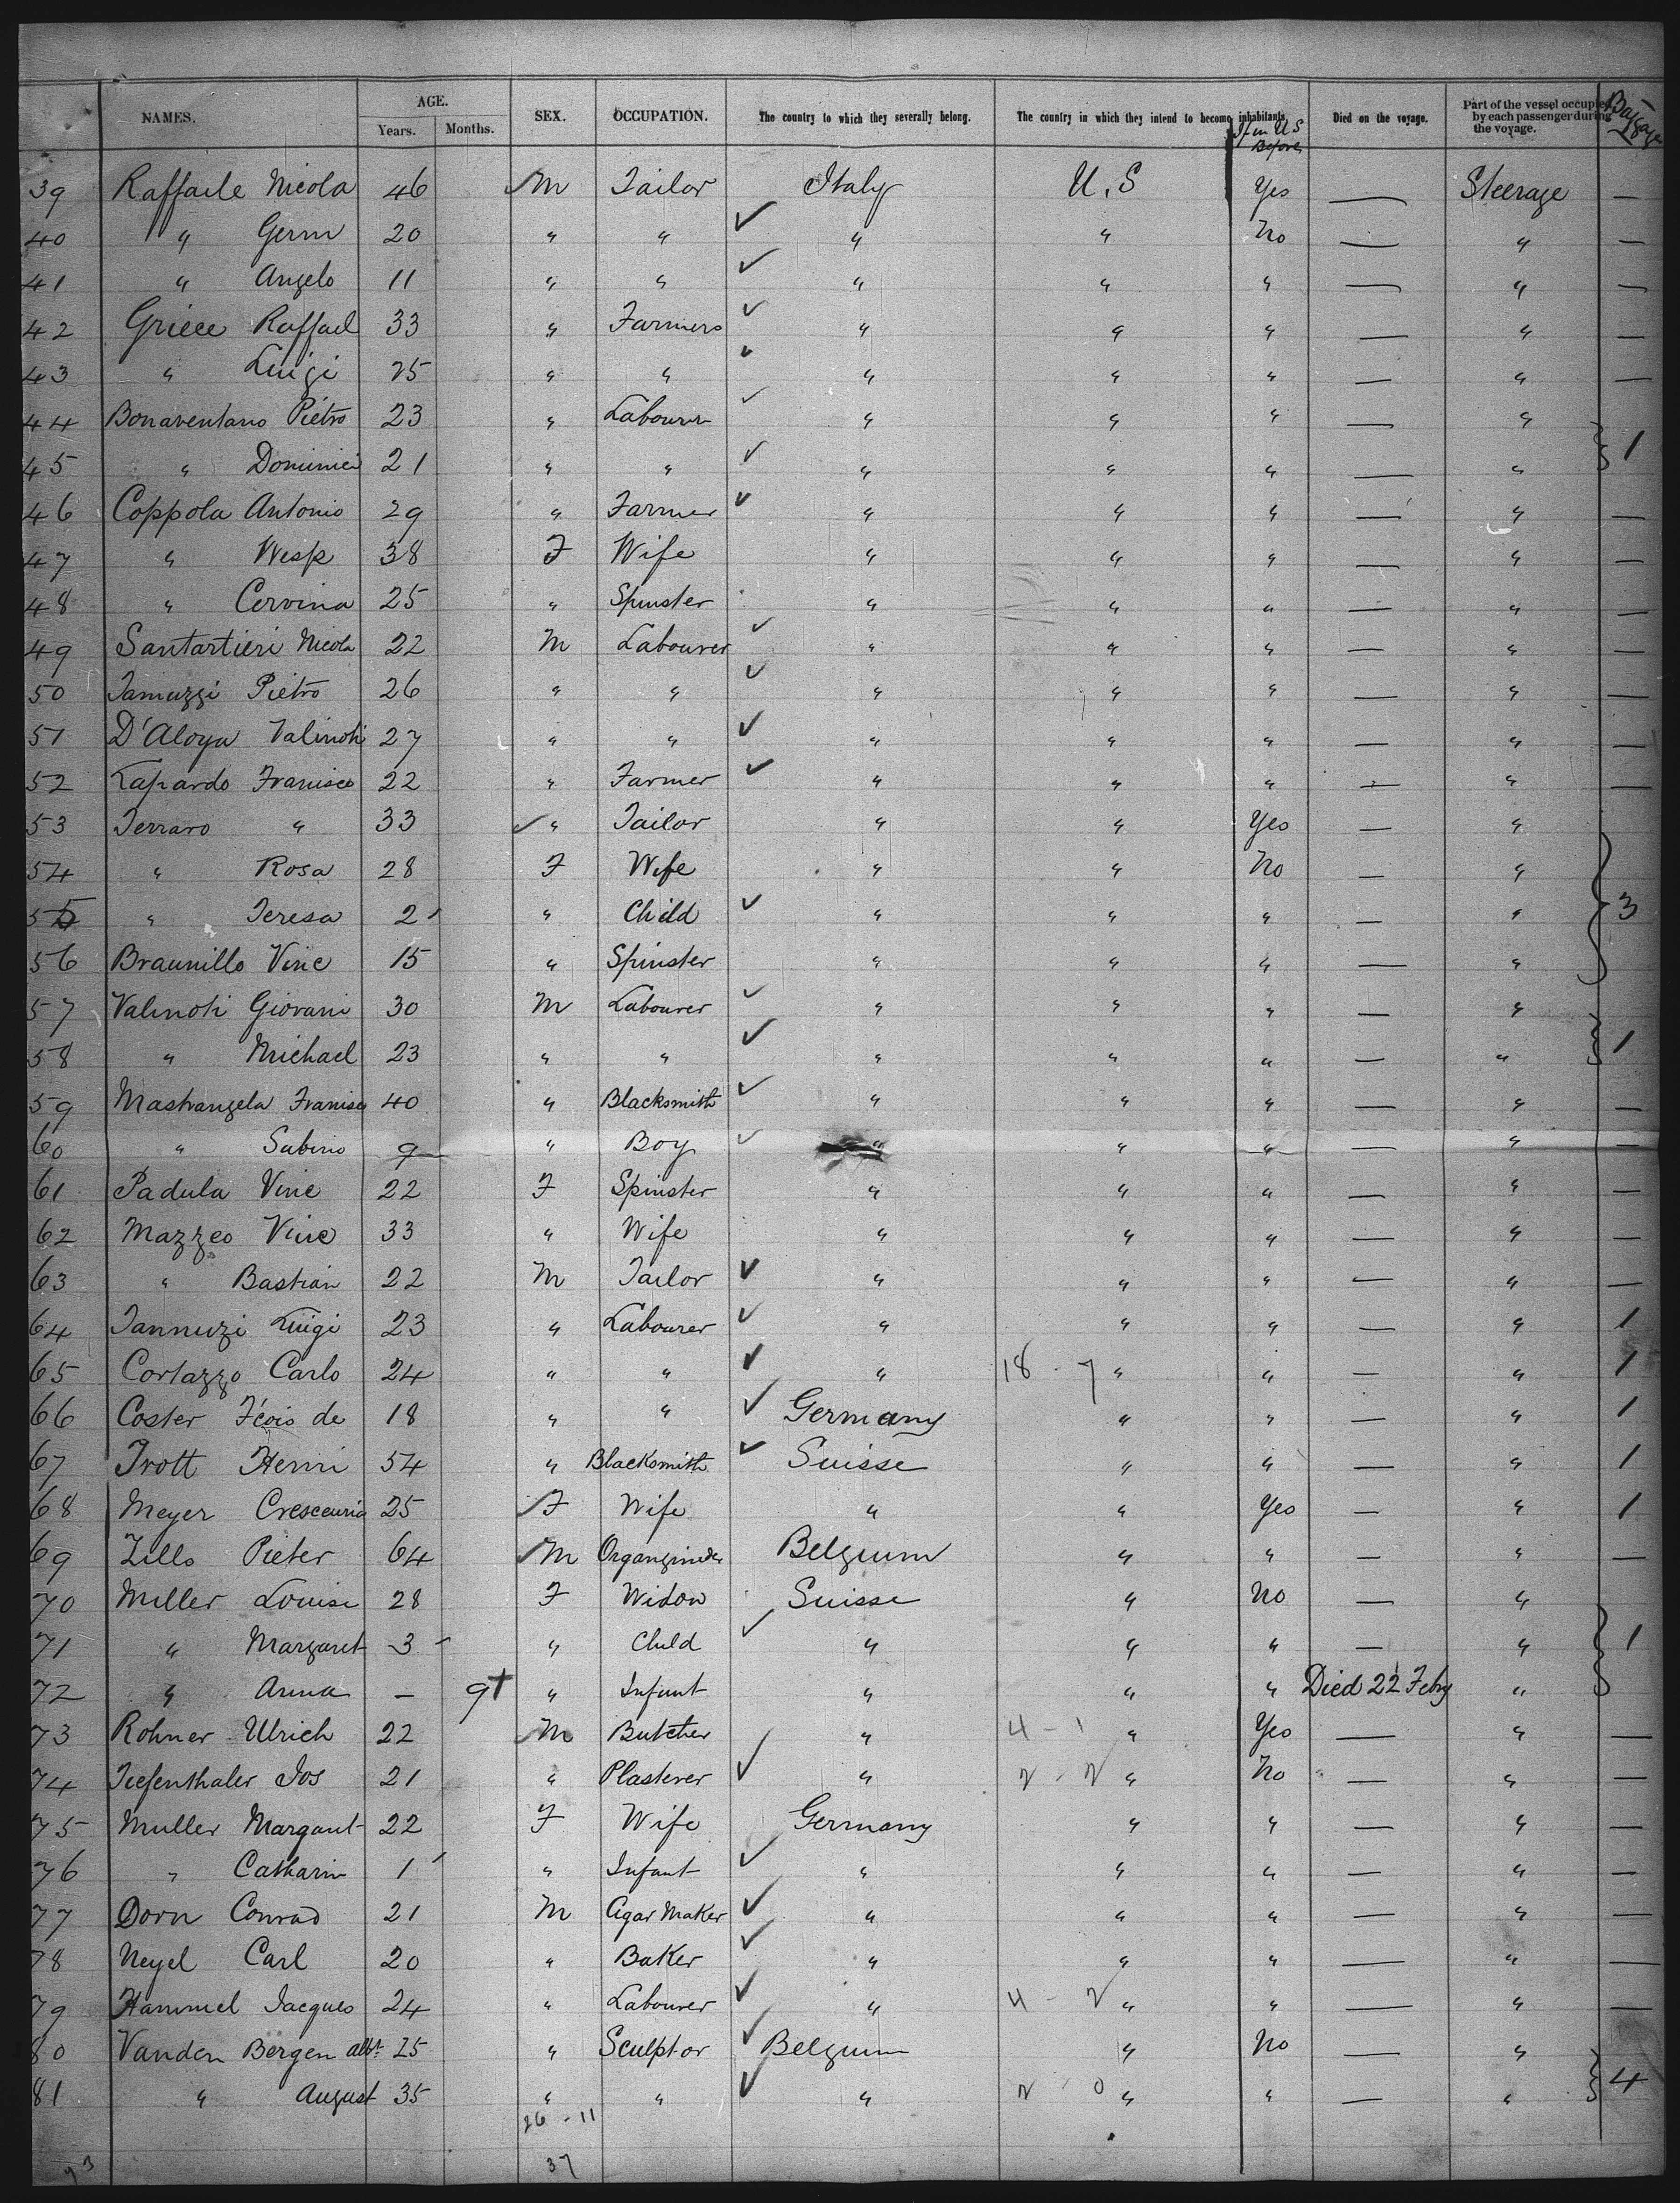 NAMES. AGE. SEX. OCCUPATION. The country to which they severally belong. The country in which they intend to become inhabitants. Died on the voyage. Part of the vessel occupied by each passenger during the voyage. Baggage
Years. Months. If in US Before
39 Raffaele Nicola 46 M Tailor Italy U.S Yes — Steerage —
40 " Germ 20 " " " " No — " —
41 " Angelo 11 " " " " " — " —
42 Griece Raffael 33 " Farmers " " " — " —
43 " Luigi 25 " " " " " — " —
44 Bonaventano Pietro 23 " Labourer " " " — "
45 " Dominici 21 " " " " " — " 1
46 Coppola Antonio 29 " Farmer " " " — " —
47 " Wesp 38 F Wife " " " — " —
48 " Cervina 25 " Spinster " " " — " —
49 Santartieri Nicola 22 M Labourer " " " — " —
50 Iamuzzi Pietro 26 " " " " " — " —
51 D'Aloya Valinoti 27 " " " " " — " —
52 Lapardo Franisco 22 " Farmer " " " — " —
53 Ferraro " 33 " Tailor " " Yes — "
54 " Rosa 28 F Wife " " No — "
55 " Teresa 2 " Child " " " — " 3
56 Braunillo Vinc 15 " Spinster " " " — "
57 Valinoti Giovani 30 M Labourer " " " — "
58 " Michael 23 " " " " " — " 1
59 Mastrangela Franisco 40 " Blacksmith " " " — " —
60 " Sabino 9 " Boy " " " — " —
61 Padula Vinc 22 F Spinster " " " — " —
62 Mazzeo Vinc 33 " Wife " " " — " —
63 " Bastian 22 M Tailor " " " — " —
64 Iannuzi Luigi 23 " Labourer " " " — " 1
65 Cortazzo Carlo 24 " " " 18 - 7 " " — " 1
66 Coster Fcois de 18 " " Germany " " — " 1
67 Trott Henri 54 " Blacksmith Suisse " " — " 1
68 Meyer Cresceuria 25 F Wife " " Yes — " 1
69 Zillo Pieter 64 M Organginder Belgium " " — " —
70 Miller Louise 28 F Widow Suisse " No — "
71 " Margaret 3 " Child " " " — " 1
72 " Anna — 9+ " Infant " " " Died 22 Feby "
73 Rohner Ulrich 22 M Butcher " 4 - 1 " Yes — " —
74 Tiefenthaler Jos 21 " Plasterer " 2 - 2 " No — " —
75 Muller Margaut 22 F Wife Germany " " — " —
76 " Catharin 1 " Infant " " " — " —
77 Dorn Conrad 21 M Cigar Maker " " " — " —
78 Neyel Carl 20 " Baker " " " — " —
79 Hammel Jacques 24 " Labourer " 4 - 2 " " — " —
80 Vanden Bergen albt 25 " Sculptor Belgium " No — "
81 " August 35 " " " 2 - 0 " " — " 4
26 - 11
37